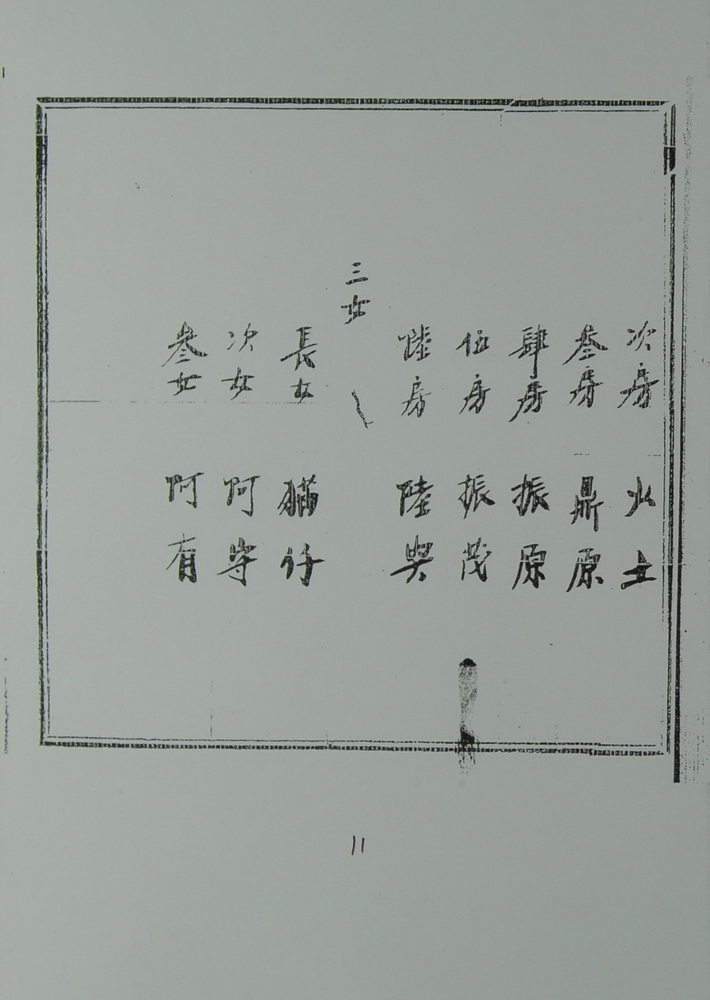 次房 火土
叁房 鼎原
肆房 振原
伍房 振茂
陸房 陸興
三女
長女 貓仔
次女 阿守
叁女 阿有
11